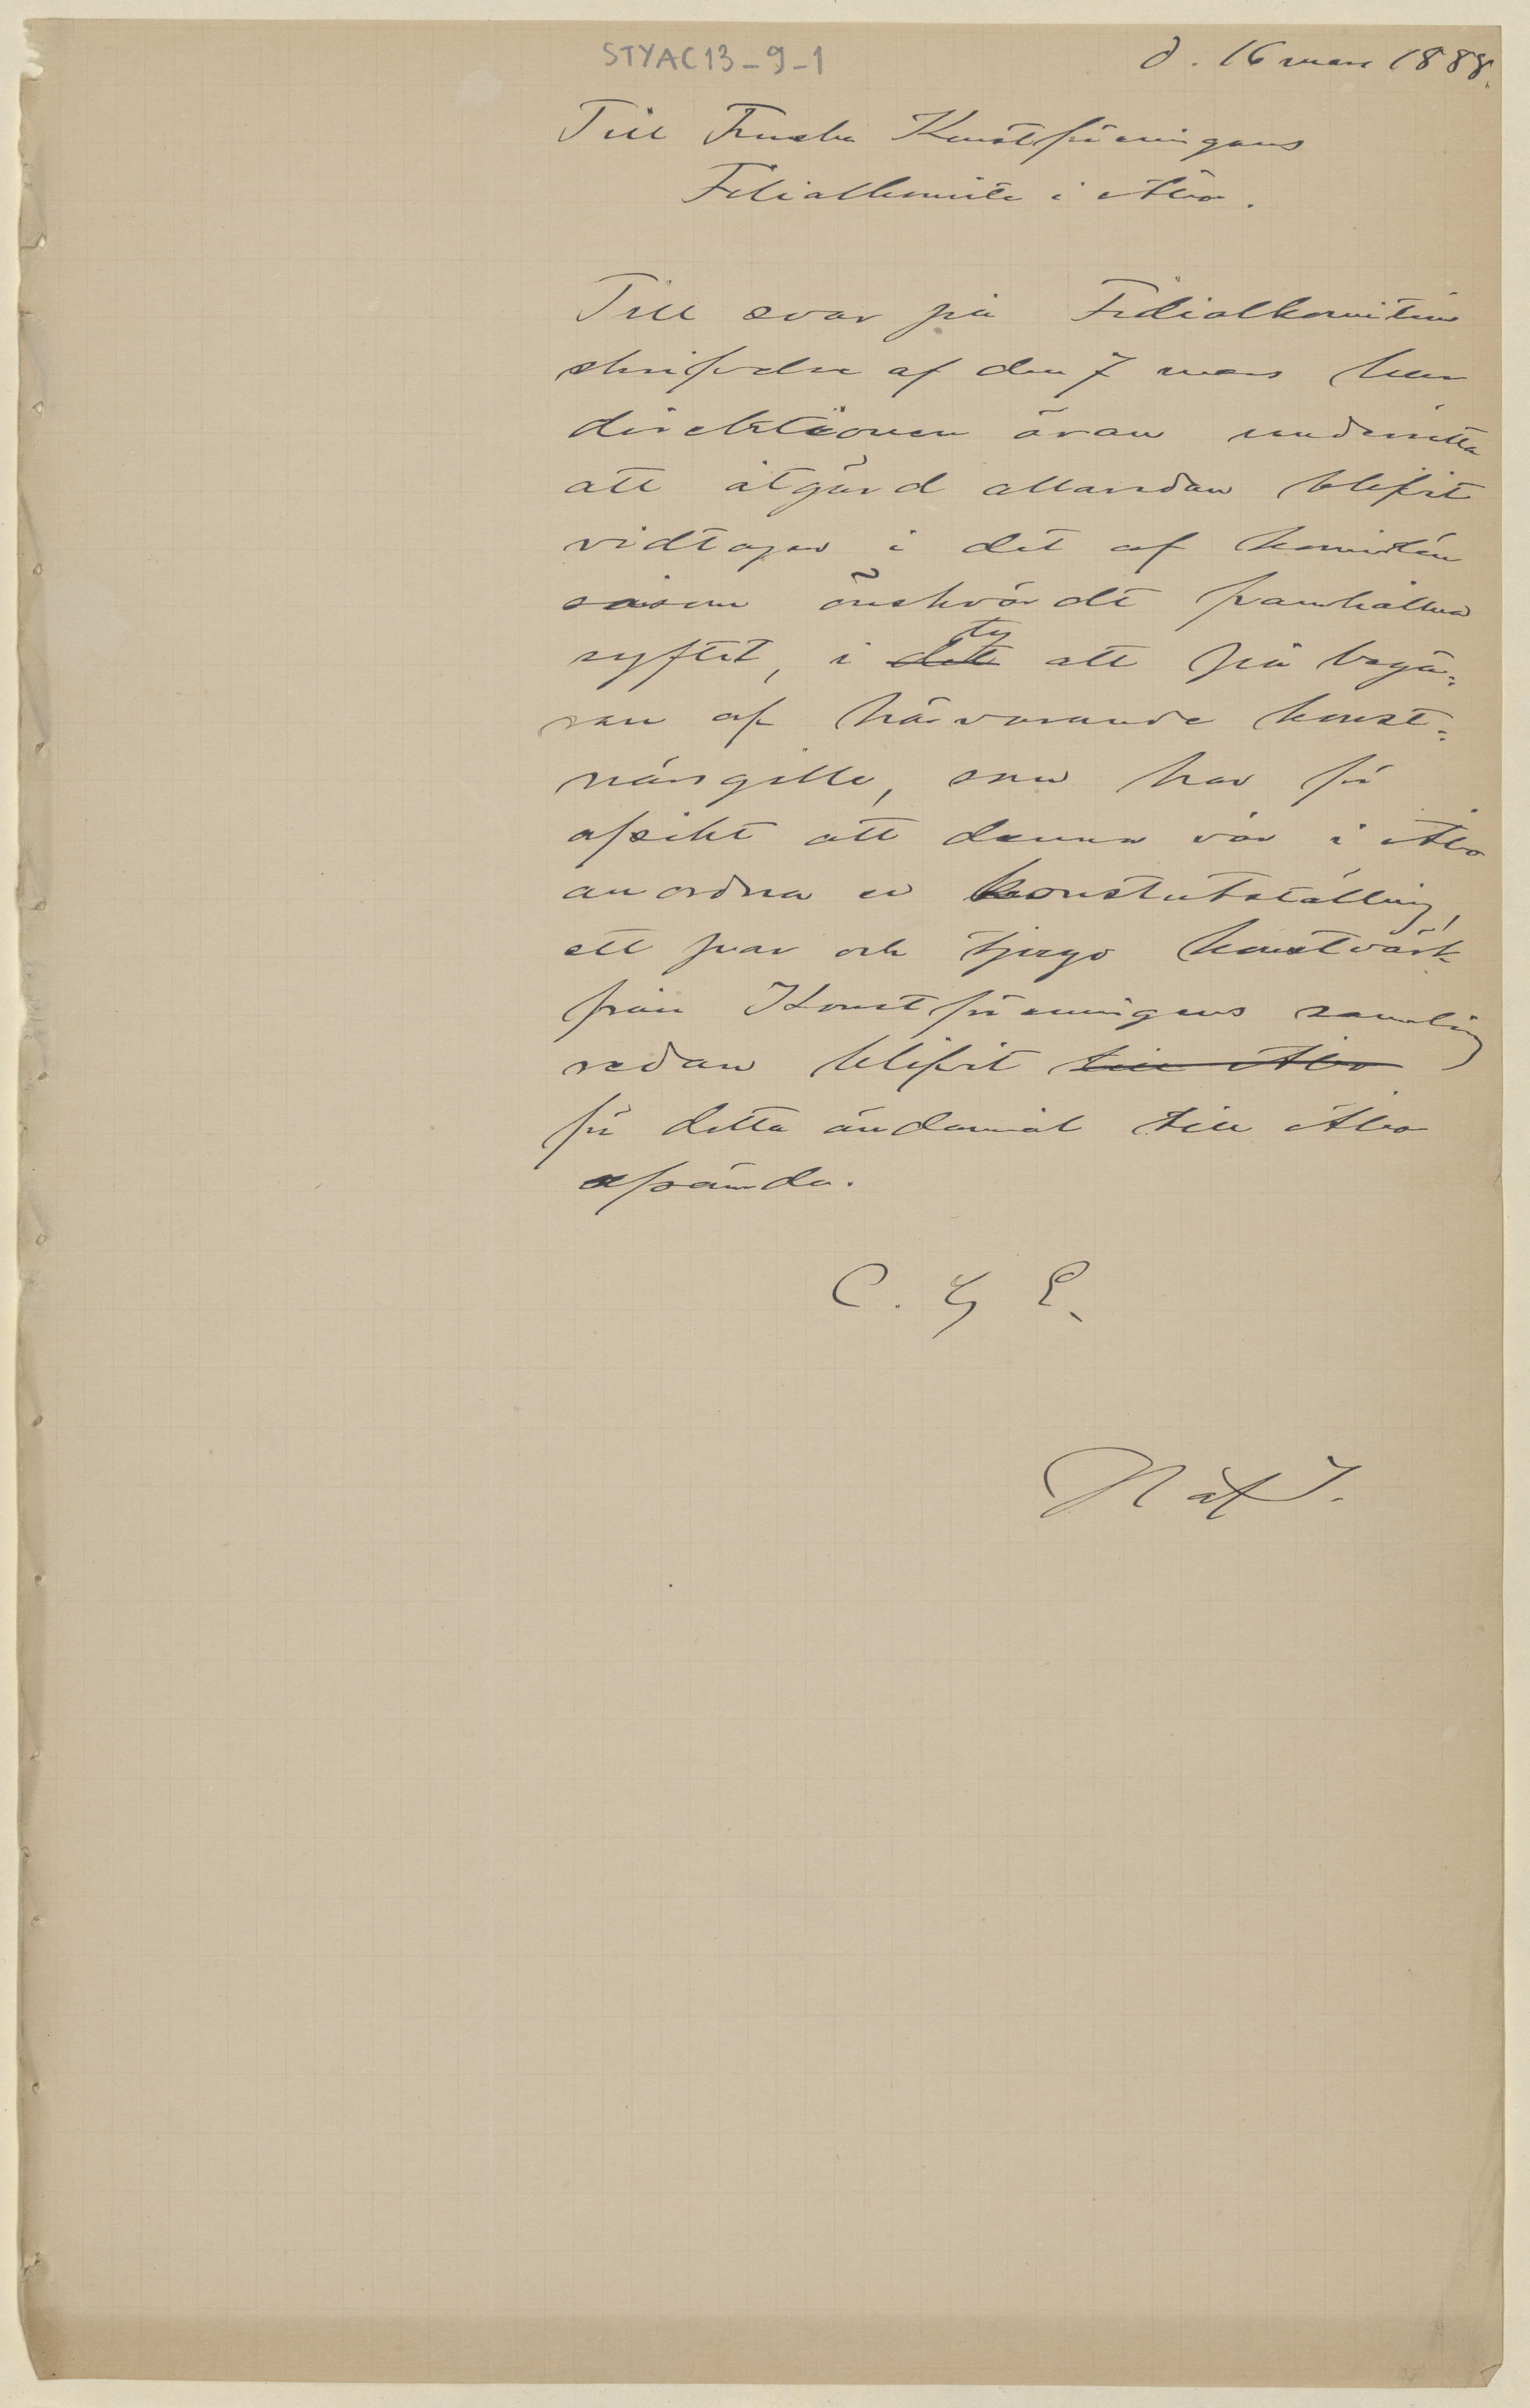 STYAC13-9-1
d. 16 mars 1888.
Till Finska Konstföreningens
Filialkomité i Åbo.
Till svar på Filialkomiténs
skrifvelse af den 7 mars har
direktionen äran underrätta
att åtgärd allaredan blifvit
vidtagen i det af komitén
såsom önskvärdt framhållna
syftet, i ty att på begä=
ran af härvarande konst=
närsgille, som har för
afsikt att denna vår i Åbo
anordna en konstutställning,
ett par och tjugo konstvärk
från Konstföreningens samling
redan blifvit till Åbo
för detta ändamål till Åbo
afsända.
C. G. E.